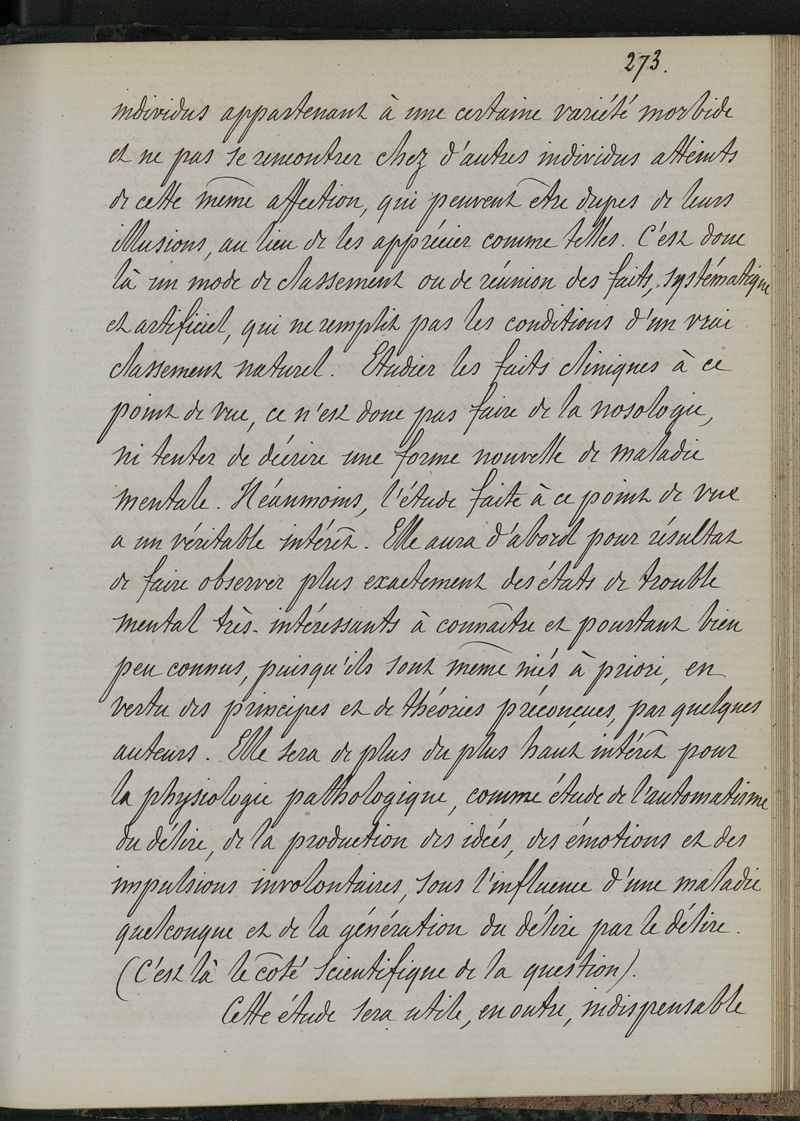 273.
individus appartenant à une certaine variété morbide
et ne pas se rencontrer chez d'autres individus atteints
de cette même affection, qui peuvent être dupes de leurs
illusions, au lieu de les apprécier comme telles. C'est donc
là un mode de classement ou de réunion des faits, systématique
et artificiel, qui ne remplit pas les conditions d'un vrai
classement naturel. Etudier les faits cliniques à ce
point de vue, ce n'est donc pas faire de la nosologie,
ni tenter de décrire une forme nouvelle de maladie
mentale. Néanmoins, l'étude faite à ce point de vue
a un véritable intérêt. Elle aura d'abord pour résultat
de faire observer plus exactement des états de trouble
mental très-intéressants à connaître et pourtant bien
peu connus, puisqu'ils sont même niés à priori, en
vertu des principes et de théories préconçues, par quelques
auteurs. Elle sera de plus du plus haut intérêt pour
la physiologie pathologique, comme étude de l'automatisme
du délire, de la production des idées, des émotions et des
impulsions involontaires, sous l'influence d'une maladie
quelconque et de la génération du délire par le délire.
(C'est là le côté scientifique de la question).
Cette étude sera utile, en outre, indispensable